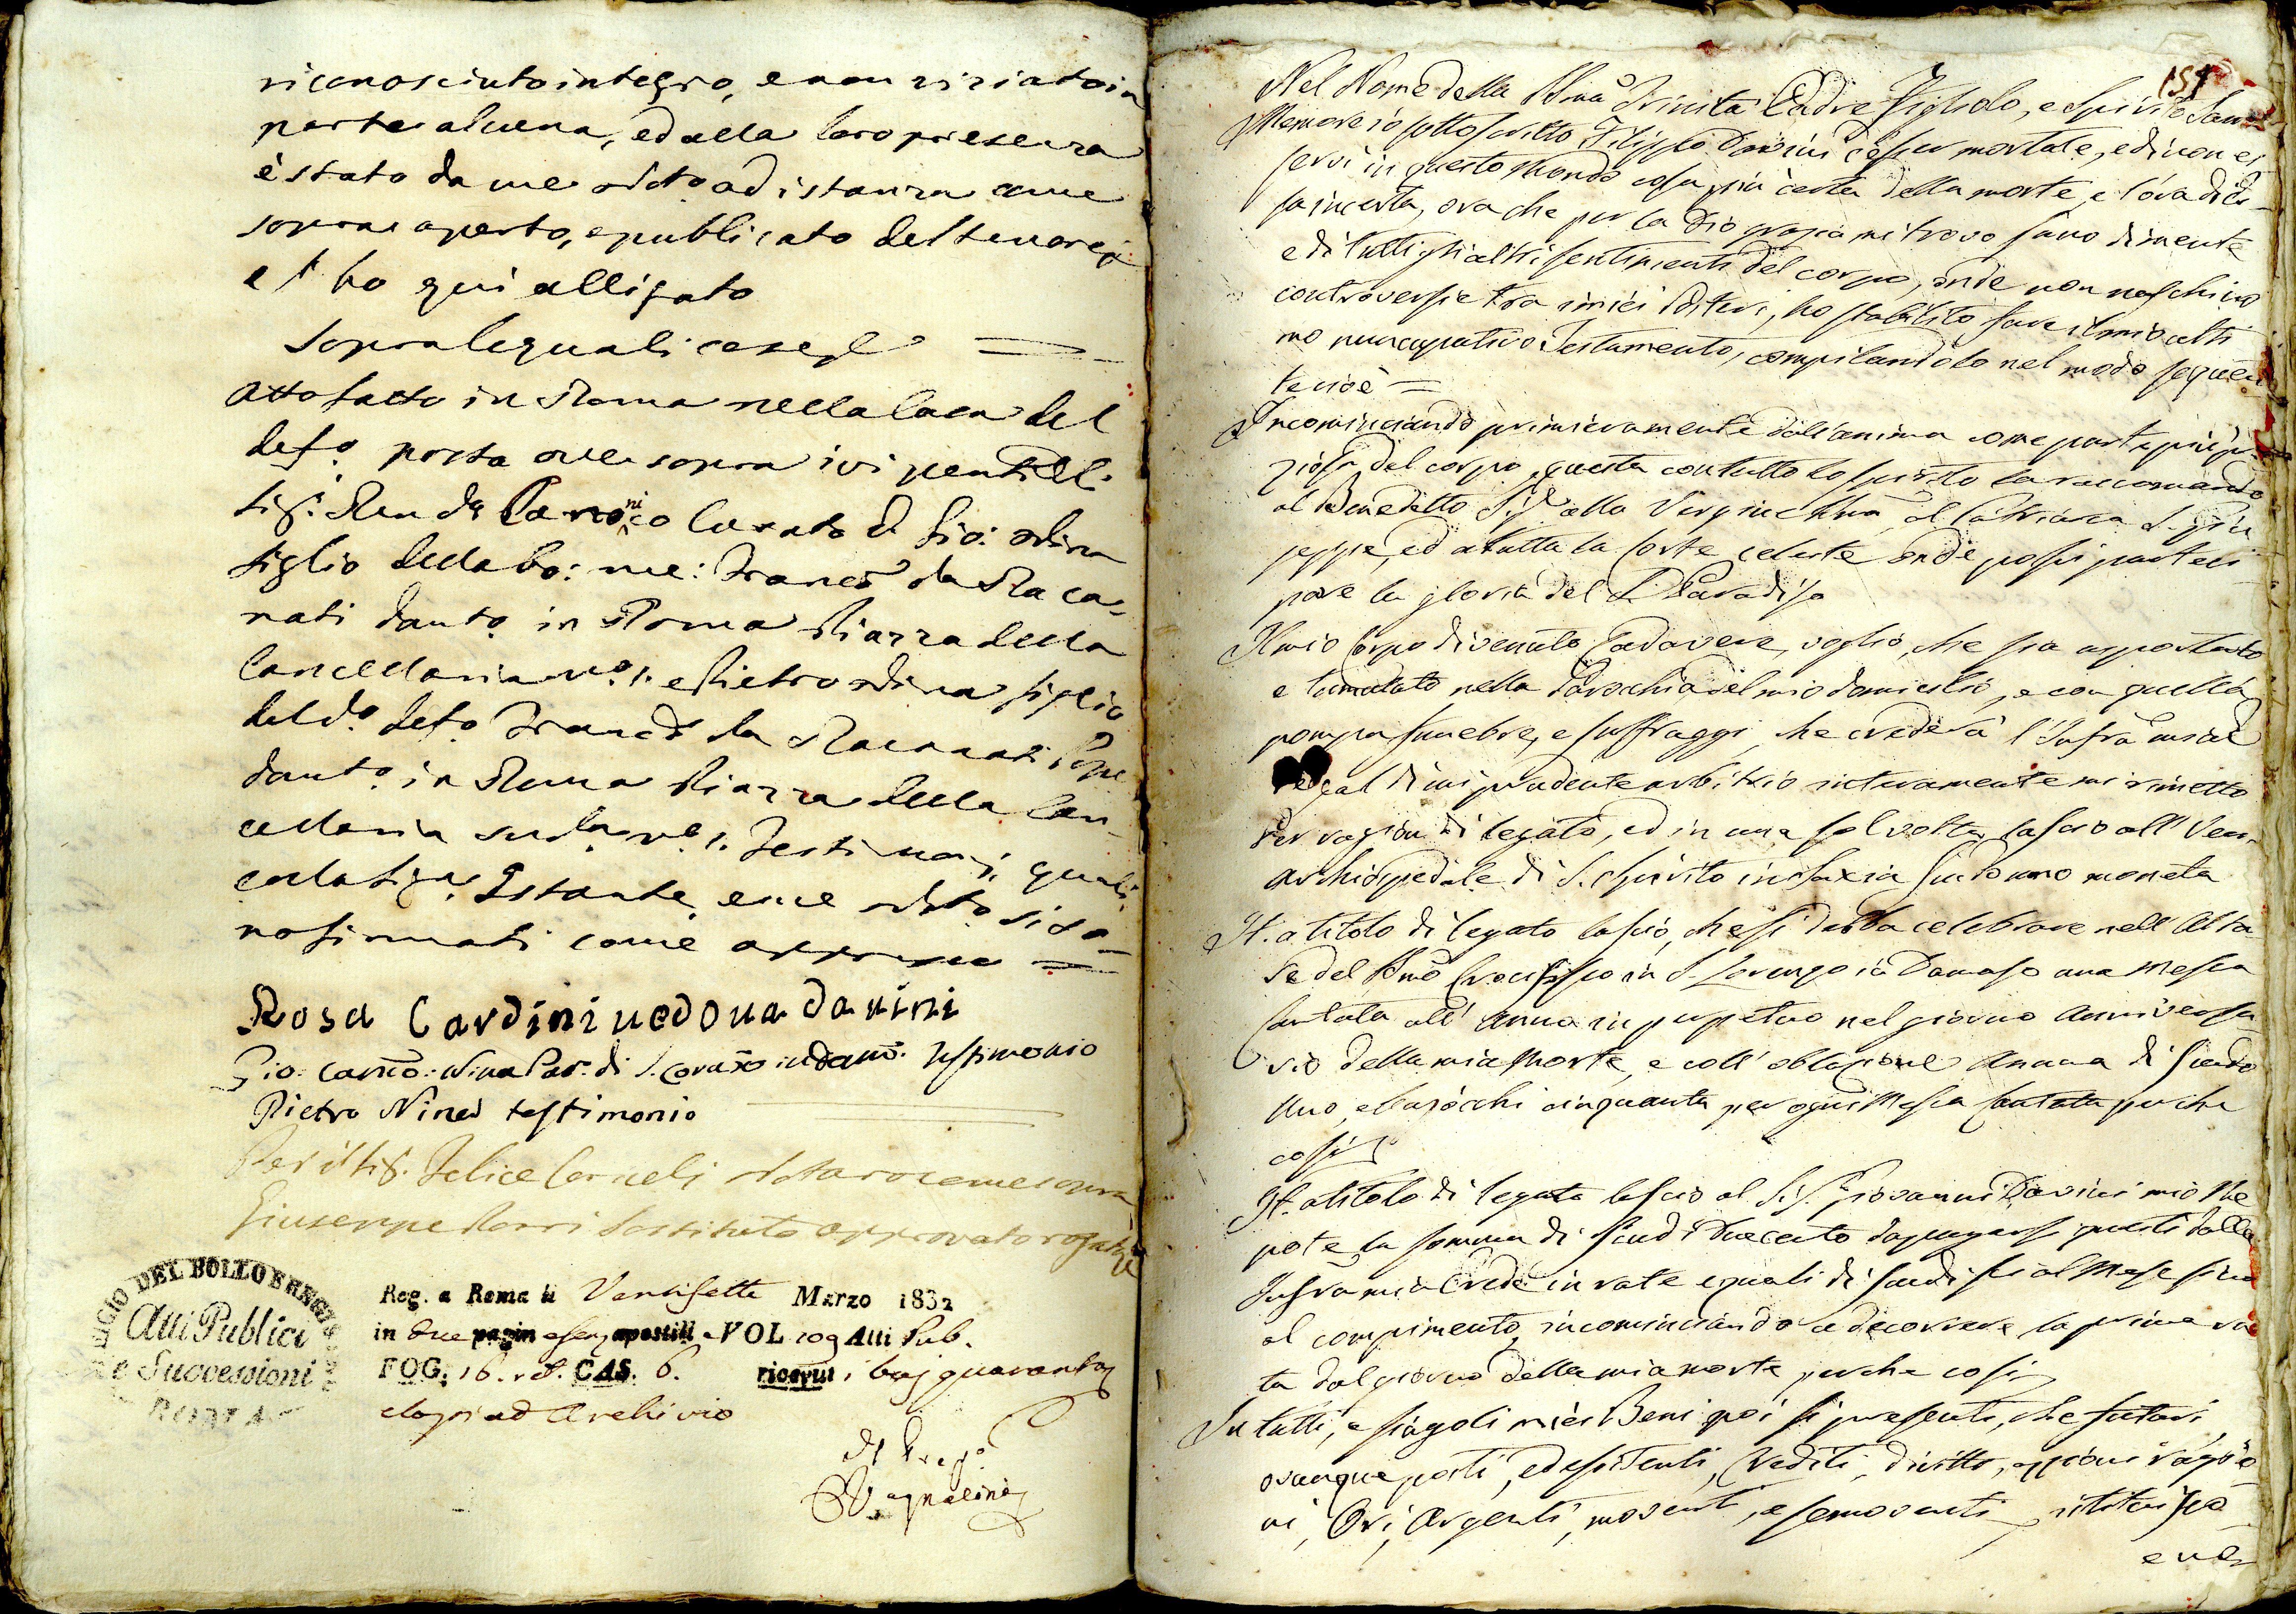 riconosciuto integro, e non viziato in
parte alcuna, ed alla loro presenza
è stato da me Noto ad istanza come
sopra aperto, e publicato del tenore
e l'ho qui alligato
Sopra le quali cose
Atto fatto in Roma nella Casa del
defo. posta ove sopra ivi presenti il
Sig. Rendo Canonico Curato D. Gio: Nina
figlio della bo: me: Franco da Reca-
nati domto in Roma Piazza della
Cancellaria No. 1. e Pietro Nina figlio
del do. defo. Franco da Recanati
domto in Roma Piazza della Can-
cellaria suda No. 1. Testimonj quali
colla Sigra Istante, e me Noto si so-
no firmati come appresso =
Rosa Cardini vedova davini
Gio: Canco: Nina Par. di S. Lorenzo in dam. Testimonio
Pietro Nina testimonio
Per il Sig. Felice Corneli Notaro come sopra
Giuseppe Sostituto approvato rogato
DEL BOLLO E REGIS
Atti Publici
e Successioni
ROMA
Reg. a Roma li Ventisette Marzo 1832
in due pagin e senz apostill VOL 109 Atti Pub.
FOG. 16. CAS. 6. ricevuti baj quaranta
ad Archivio
Il Prepo
154
Nel Nome della SSma Trinità Padre Figliolo, e Spirito San
Memore io sottoscritto Filippo Davini d'esser mortale, e di non es
servi in questo Mondo cosa più certa della morte, e l'ora di es
sa incerta, ora che per la Dio grazia mi trovo sano di mente
e di tutti gli altri sentimenti del corpo, onde non naschino
controversie tra i miei Posteri, ho stabilito fare il mio ulti
mo nuncupativo Testamento, compilandolo nel modo seguen
te cioè =
Incominciando primieramente dall'anima come parte più pre
ziosa del corpo, questa con tutto lo spirito la raccomando
al Benedetto Dio alla Vergine SSma, al Patriarca S. Giu
seppe, ed a tutta la Corte celeste onde possi parteci
pare la gloria del S. Paradiso
Il mio Corpo divenuto Cadavere, voglio, che sia asportato
e tumulato nella Parochia del mio domicilio, e con quella
pompa funebre, e suffraggi che crederà l'Infra mia
Erede al di cui prudente arbitrio interamente mi rimetto
Per ragion di legato, ed in una sol volta lascio all' Ven.
Archiospedale di S. Spirito in Saxia Scudo uno moneta
It. a titolo di legato lascio, che si debba celebrare nell' Alta-
re del SSmo Crocifisso in S. Lorenzo in Damaso una Messa
Cantata all' anno in perpetuo nel giorno Anniversa-
rio della mia Morte, e coll' oblazione annua di Scudo
Uno, e bajocchi cinquanta per ogni Messa Cantata perche
così
It. a titolo di legato lascio al Sig. Giovanni Davini mio Ne
pote la somma di Scudi Duecento da pagarsi questi dalla
Infra mia Erede in rate eguali di scudi sei al Mese fino
al compimento, incominciando a decorrere la prima ra
ta dal giorno della mia morte perche così
In tutti, e singoli miei Beni poi si presenti, che futuri,
ovunque posti, ed esistenti, Crediti, diritti, azzioni ragio
ni, Ori, Argenti, moventi, e semoventi istituisco